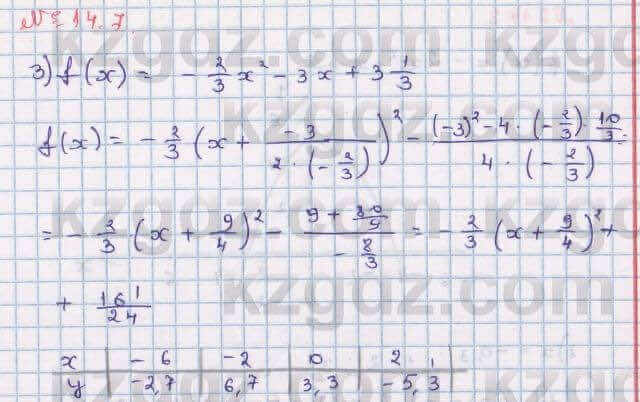 № 14.7.
3) f(x) = - 2/3 x² - 3x + 3 1/3
f(x) = - 2/3 (x + (-3)/(2 · (- 2/3)))² - ((-3)² - 4 · (- 2/3) · 10/3)/(4 · (- 2/3)) =
= - 2/3 (x + 9/4)² - (9 + 80/9)/(- 8/3) = - 2/3 (x + 9/4)² +
+ 161/24
x | -6 | -2 | 0 | 2
y | -2,7 | 6,7 | 3,3 | -5,3
kzgdz.com